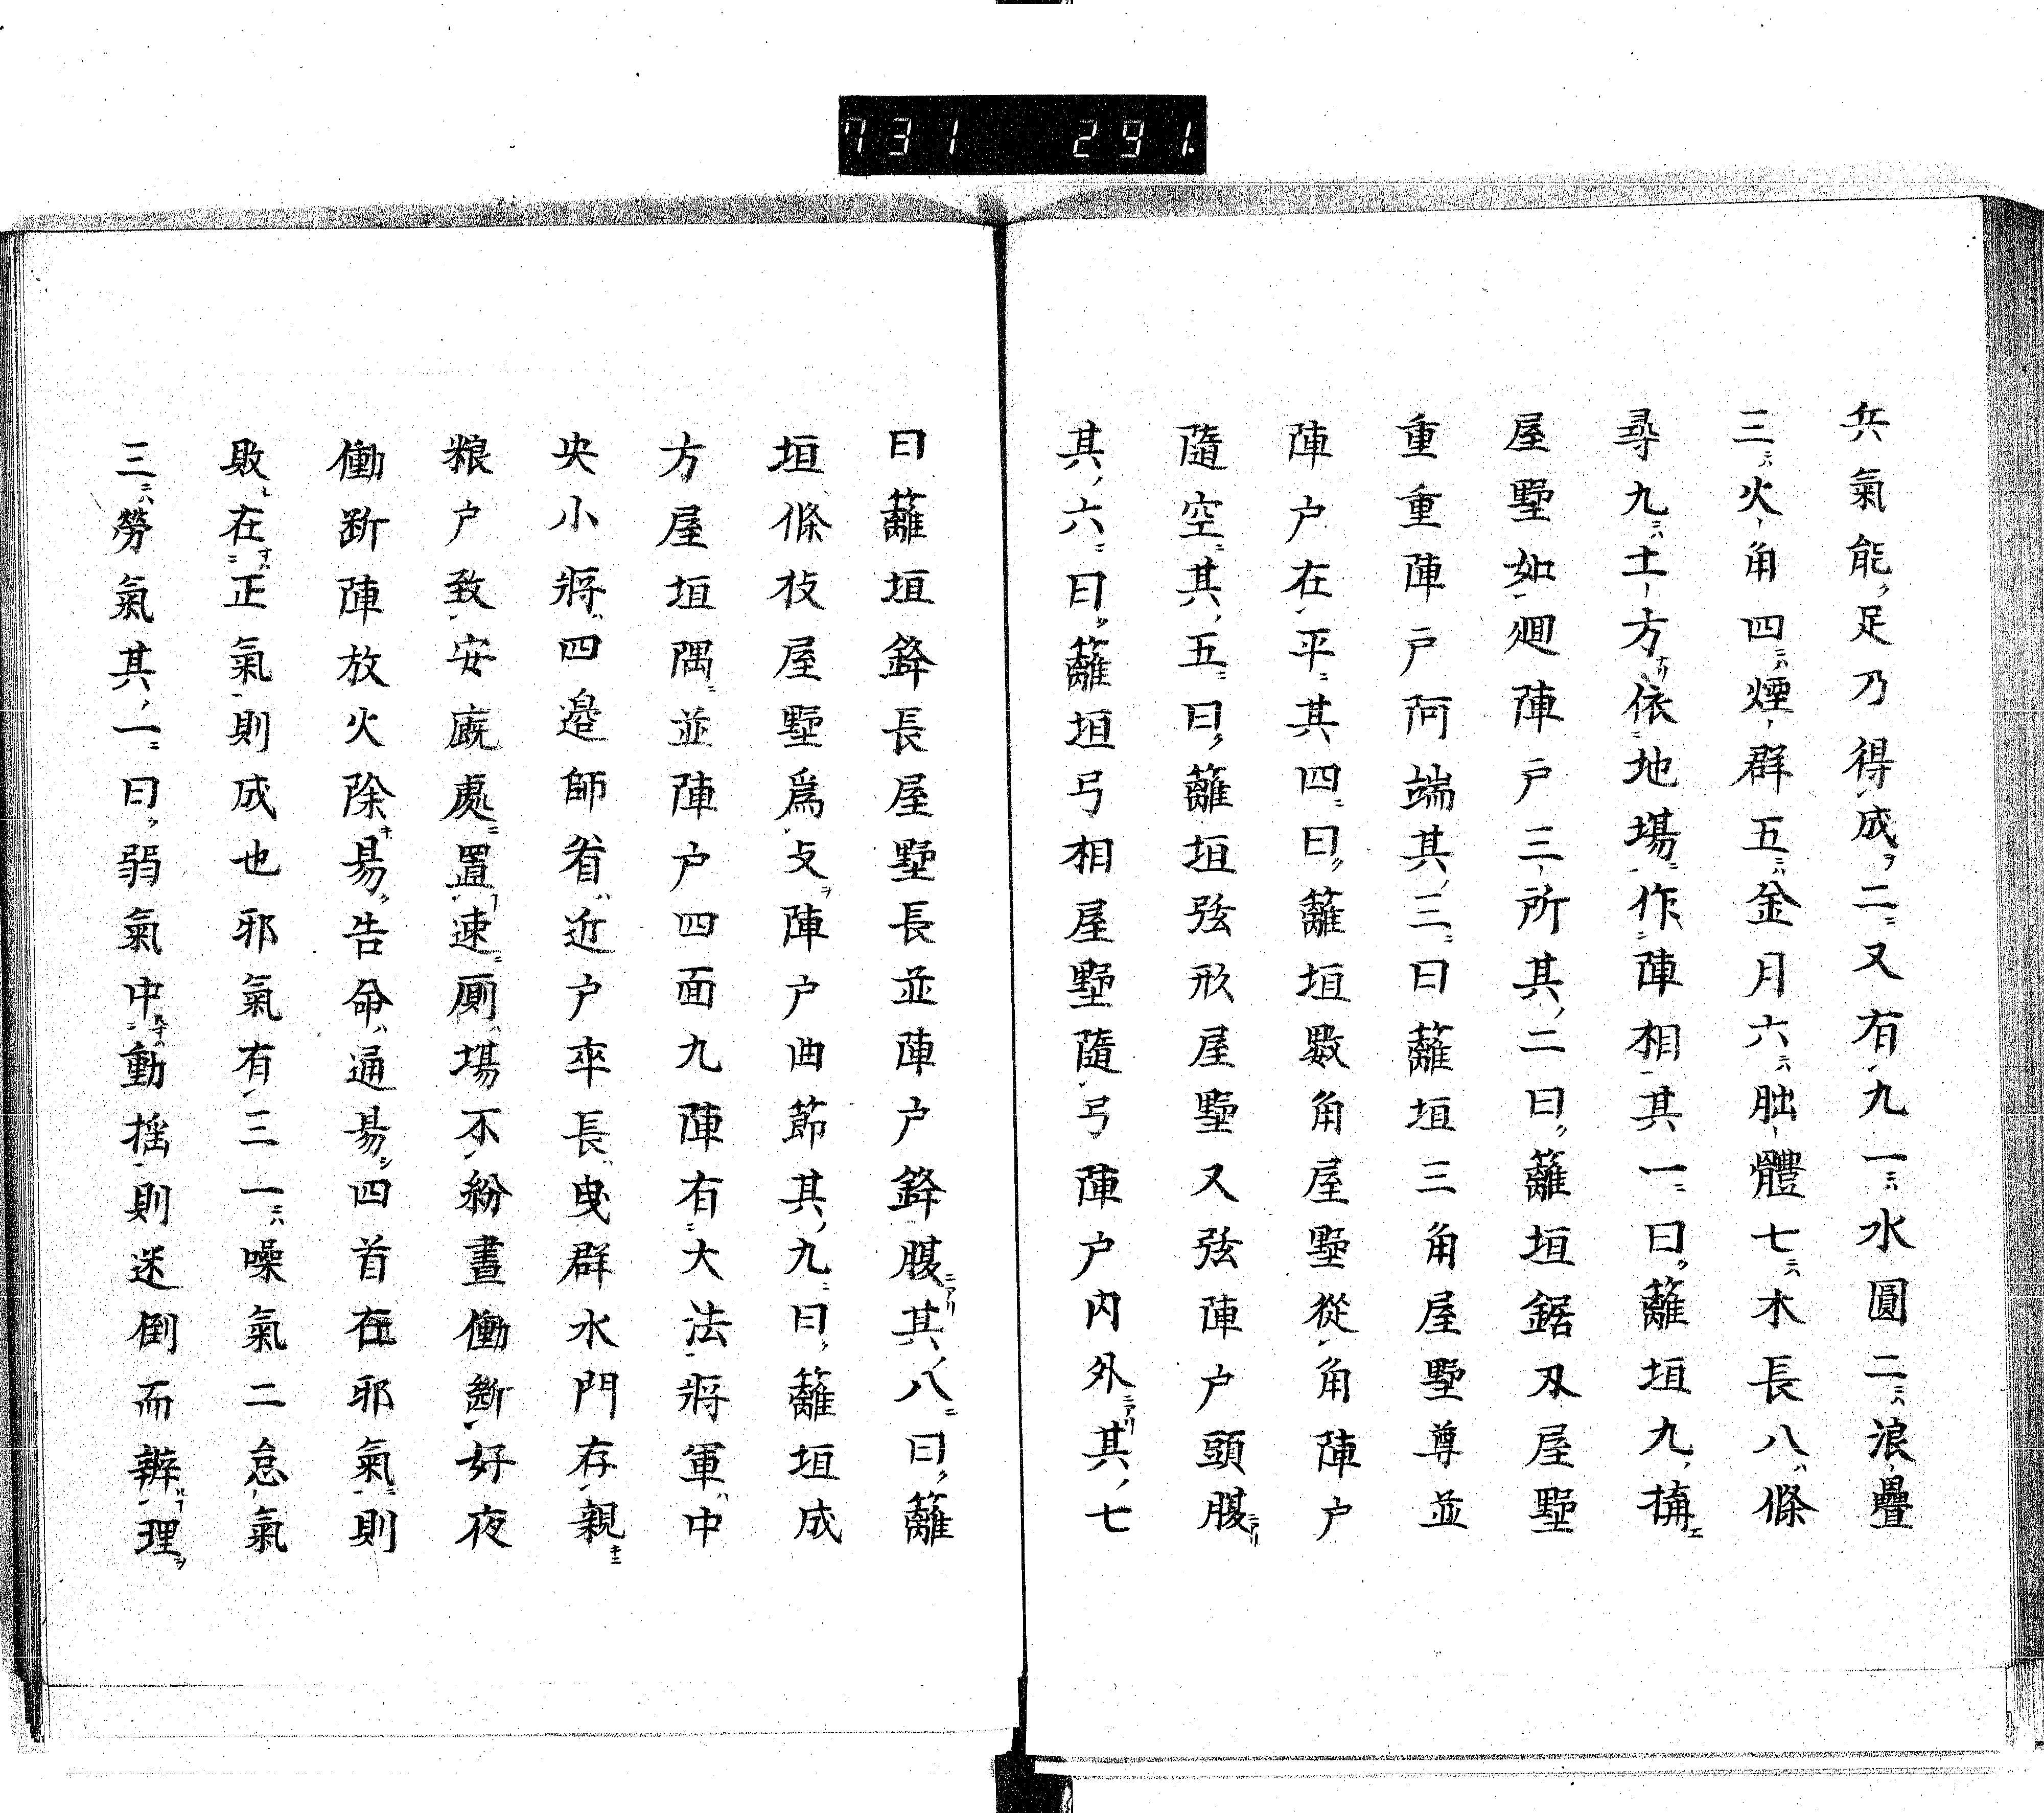 731 291
兵氣能足乃得成二又有九一水圓二浪疊
三火角四煙群五金月六朏體七木長八條
尋九土方依地場作陣相其一曰籬垣九構
屋墅如廻陣戸三所其二曰籬垣鋸刄屋墅
重重陣戸阿端其三曰籬垣三角屋墅尊並
陣户在平其四曰籬垣數角屋墅從角陣户
隨空其五曰籬垣弦形屋墅又弦陣户頭腹
其六曰籬垣弓相屋墅隨弓陣户内外其七
曰籬垣鋒長屋墅長並陣户鋒腹其八曰籬
垣條枝屋墅爲支陣户曲節其九曰籬垣成
方屋垣隅並陣户四面九陣有大法將軍中
央小將四邉師省近户卒長曵群水門存親
粮户致安廐處置速厠場不紛晝働斷好夜
働斷陣放火除易告命通易四首在邪氣則
敗在正氣則成也邪氣有三一噪氣二怠氣
三勞氣其一曰弱氣中動揺則迷倒而辨理